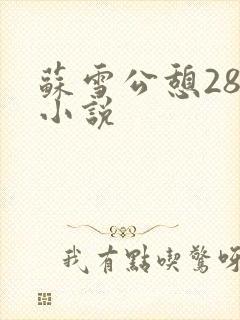 蘇雪公憩28
小說
我有點喫驚呀